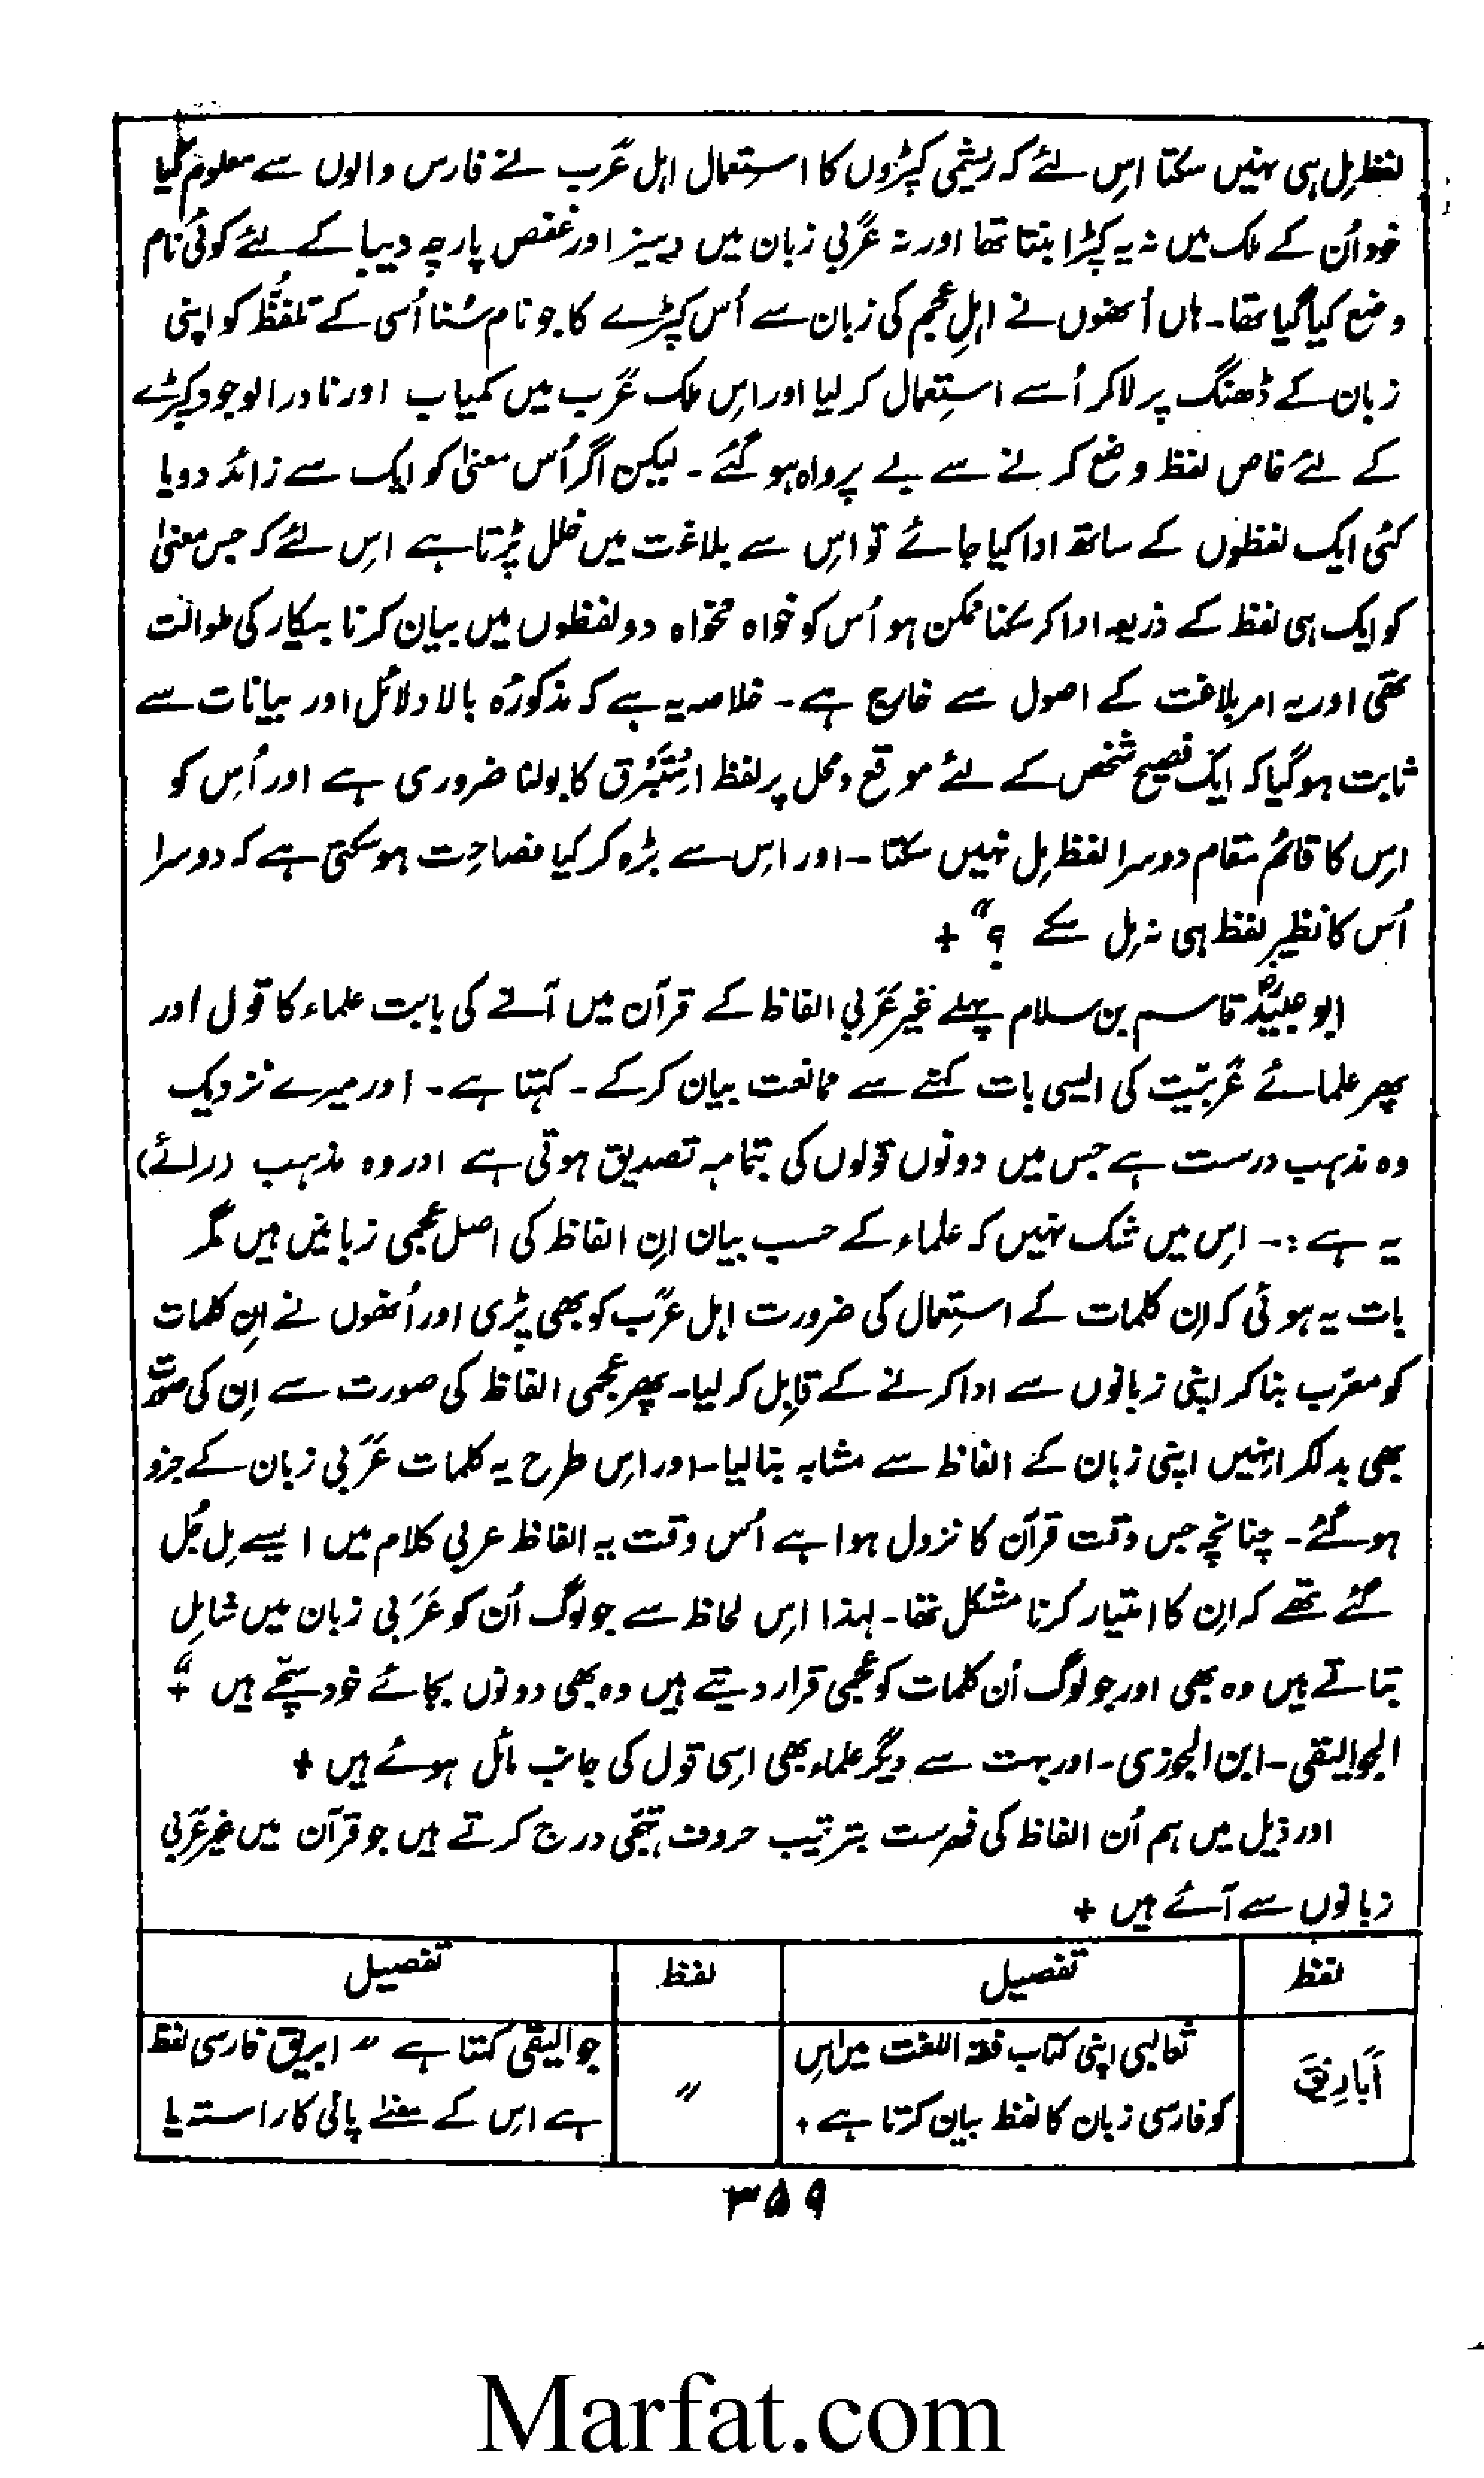 لفظ مِل ہی نہیں سکتا اس لئے کہ ریشمی کپڑوں کا استِعمال اہل عَرب نے فارس والوں سے معلوم کیا
خود اُن کے ملک میں نہ یہ کپڑا بنتا تھا اور نہ عَربی زبان میں دبیز اور غفص پارچہ دیبا کے لئے کوئی نام
وضع کیا گیا تھا۔ ہاں اُنھوں نے اہلِ عجم کی زبان سے اُس کپڑے کا جو نام سُنا اُسی کے تلفُّظ کو اپنی
زبان کے ڈھنگ پر لاکر اُسے استِعمال کر لیا اور اس ملک عَرب میں کمیاب اور نادر الوجود کپڑے
کے لئے خاص لفظ وضع کرنے سے بے پرواہ ہو گئے۔ لیکن اگر اُس معنیٰ کو ایک سے زائد دو یا
کئی ایک لفظوں کے ساتھ ادا کیا جائے تو اس سے بلاغت میں خلل پڑتا ہے اس لئے کہ جس معنیٰ
کو ایک ہی لفظ کے ذریعہ ادا کر سکنا ممکن ہو اُس کو خواہ مخواہ دو لفظوں میں بیان کرنا بیکار کی طوالت
تھی اور یہ امر بلاغت کے اصول سے خارج ہے۔ خلاصہ یہ ہے کہ مذکورۂ بالا دلائل اور بیانات سے
ثابت ہو گیا کہ ایک فصیح شخص کے لئے موقع و محل پر لفظ اِسْتَبْرَق کا بولنا ضروری ہے اور اُس کو
اس کا قائم مقام دوسرا لفظ مِل نہیں سکتا۔ اور اس سے بڑہ کر کیا فصاحت ہو سکتی ہے کہ دوسرا
اُس کا نظیر لفظ ہی نہ مِل سکے ؟" +
ابو عبیدؒ قاسم بن سلام پہلے غیر عَربی الفاظ کے قرآن میں آنے کی بابت علماء کا قول اور
پھر علمائے عَربیّت کی ایسی بات کہنے سے ممانعت بیان کرکے۔ کہتا ہے۔ اور میرے نزدیک
وہ مذہب درست ہے جس میں دونوں قولوں کی بتمامہ تصدیق ہوتی ہے اور وہ مذہب (رائے)
یہ ہے :۔ اس میں شک نہیں کہ علماء کے حسب بیان اِن الفاظ کی اصل عجمی زبانیں ہیں مگر
بات یہ ہوئی کہ اِن کلمات کے استِعمال کی ضرورت اہل عرَب کو بھی پڑی اور اُنھوں نے اِن کلمات
کو معرّب بنا کر اپنی زبانوں سے ادا کرنے کے قابِل کر لیا۔ پھر عجمی الفاظ کی صورت سے اِن کی صورت
بھی بدلکر انہیں اپنی زبان کے الفاظ سے مشابہ بنا لیا۔ اور اس طرح یہ کلمات عَربی زبان کے جزو
ہو گئے۔ چنانچہ جس وقت قرآن کا نزول ہوا ہے اُس وقت یہ الفاظ عربی کلام میں ایسے مِل جُل
گئے تھے کہ اِن کا امتیاز کرنا مشکل تھا۔ لہذا اس لحاظ سے جو لوگ اُن کو عَربی زبان میں شامِل
بتاتے ہیں وہ بھی اور جو لوگ اُن کلمات کو عجمی قرار دیتے ہیں وہ بھی دونوں بجائے خود سچّے ہیں" +
الجوالیقی۔ ابن الجوزی۔ اور بہت سے دیگر علماء بھی اسی قول کی جانب مائل ہوئے ہیں +
اور ذیل میں ہم اُن الفاظ کی فہرست بترتیب حروف تہجّی درج کرتے ہیں جو قرآن میں غیر عَربی
زبانوں سے آئے ہیں +
لفظ تفصیل لفظ تفصیل
اَبَارِیْقَ
ثعالبی اپنی کتاب فقہ اللغت میں اس
کو فارسی زبان کا لفظ بیان کرتا ہے +
"
جوالیقی کہتا ہے " ابریق فارسی لفظ
ہے اس کے معنے پانی کا راستہ یا
۳۵۹
Marfat.com